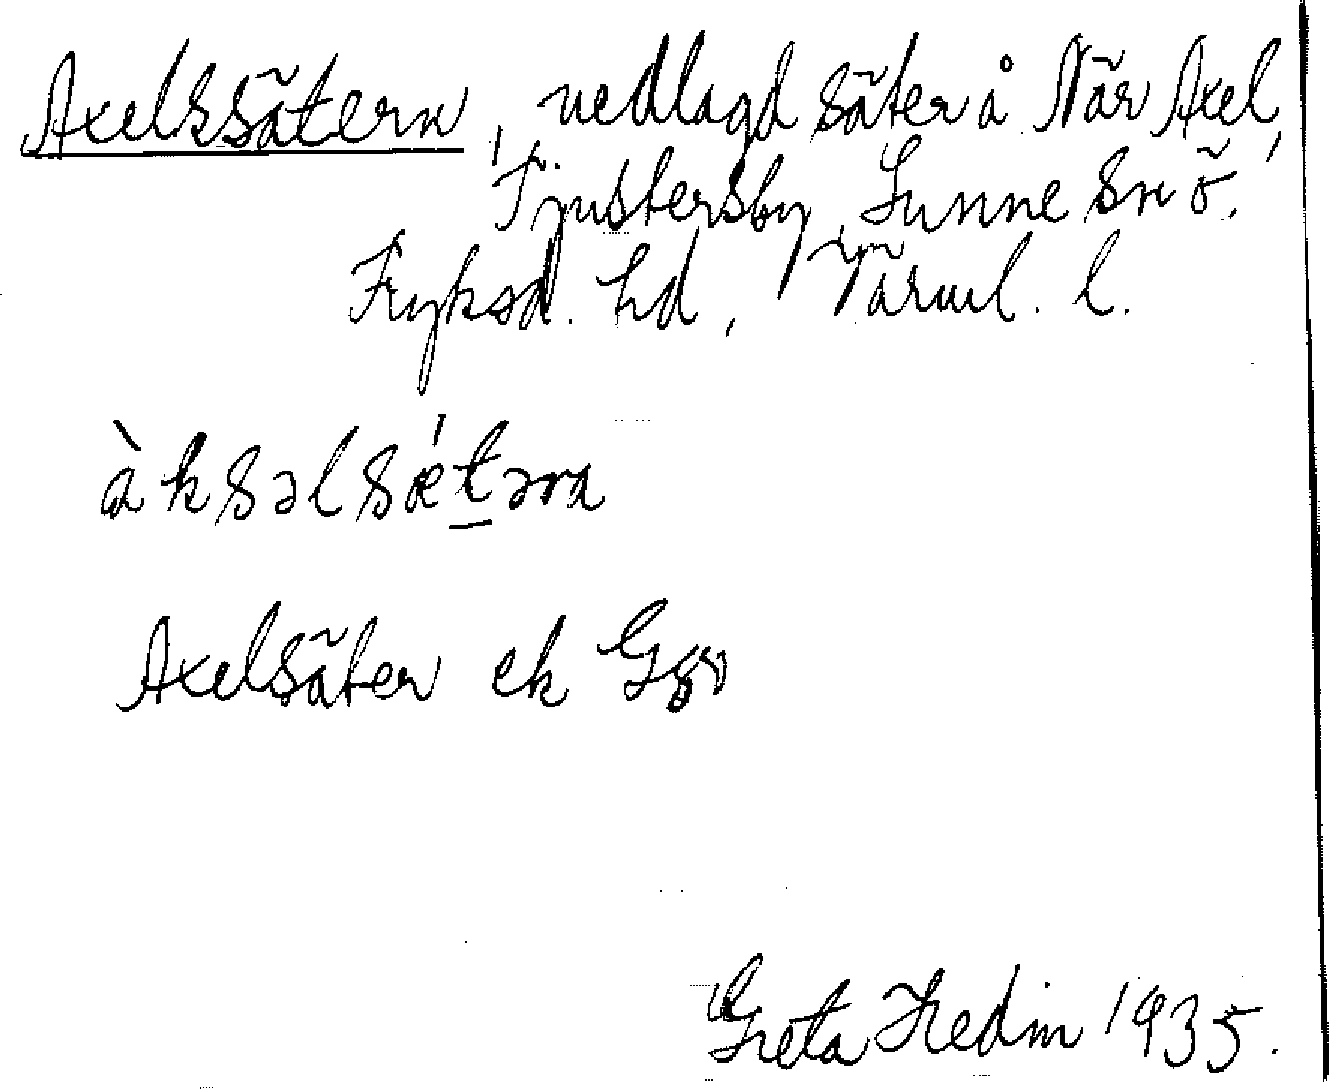 Axelksätern, nedlagd säter å När Axel,
Tjustersby, Sunne sn ö.
Fryksd. hd, Värml. l.
àksəlsǽt̲əra
Axelsäter ek
Greta Hedin 1935.